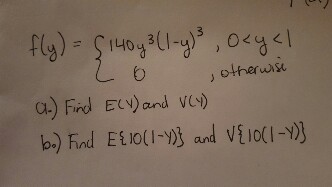 f(y) = { 140y³(1-y)³ , 0<y<1
0 , otherwise
a.) Find E(Y) and V(Y)
b.) Find E{10(1-Y)} and V{10(1-Y)}